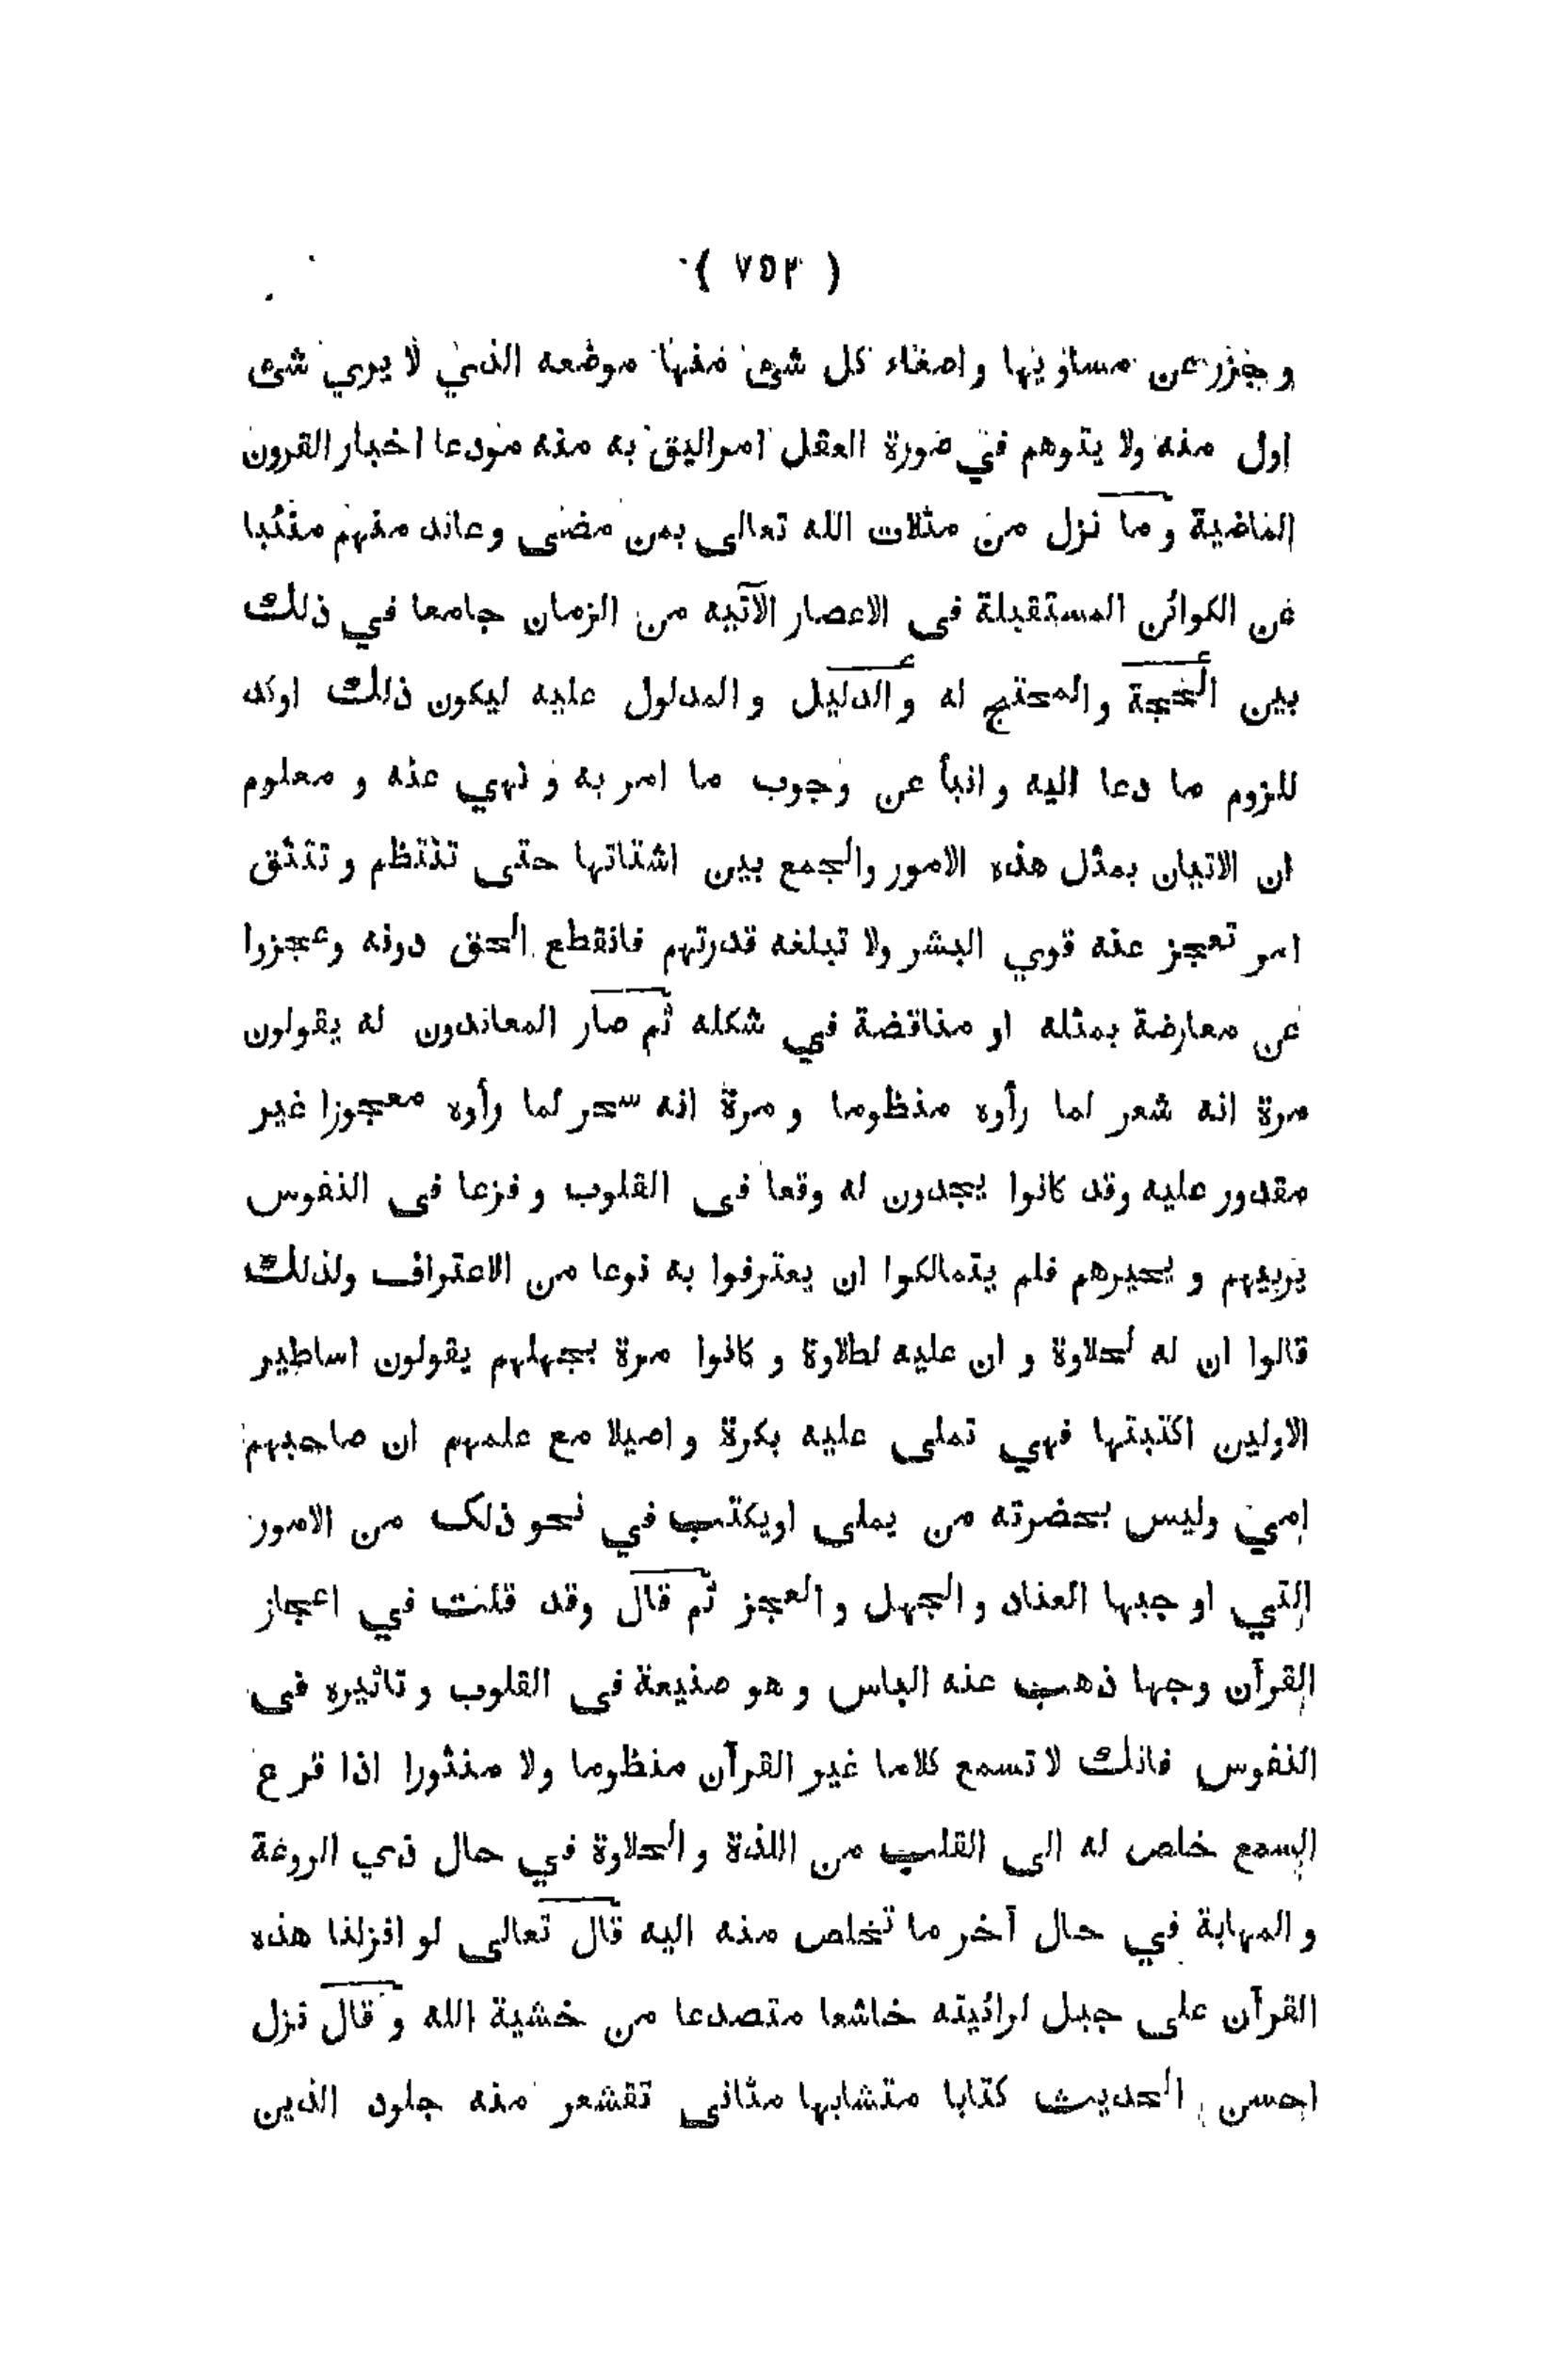 ( ٧٥٢ )
و جزر عن مساوئها و اصغاء كل شئ منها موضعه الذي لا يري شئ
اول منه ولا يتوهم في صورة العقل امر اليق به منه مودعا اخبار القرون
الماضية و ما نزل من مثلات الله تعالى بمن مضى و عاند منهم منئبا
عن الكوائن المستقبلة فى الاعصار الآتيه من الزمان جامعا في ذلك
بين الحجة و المحتج له و الدليل و المدلول عليه ليكون ذلك اوكد
للزوم ما دعا اليه و انبأ عن وجوب ما امر به و نهي عنه و معلوم
ان الاتيان بمثل هذه الامور والجمع بين اشتاتها حتى تنتظم و تتثق
امر تعجز عنه قوي البشر ولا تبلغه قدرتهم فانقطع الحق دونه وعجزوا
عن معارضة بمثله او مناقضة في شكله ثم صار المعاندون له يقولون
مرة انه شعر لما رأوه منظوما و مرة انه سحر لما رأوه معجوزا غير
مقدور عليه وقد كانوا يجدون له وقعا فى القلوب و فزعا فى النفوس
يربيهم و يحيرهم فلم يتمالكوا ان يعترفوا به نوعا من الاعتراف ولذلك
قالوا ان له لحلاوة و ان عليه لطلاوة و كانوا مرة بجهلهم يقولون اساطير
الاولين اكتتبتها فهي تملى عليه بكرة و اصيلا مع علمهم ان صاحبهم
امي وليس بحضرته من يملى اويكتب في نحو ذلک من الامور
التي او جبها العناد و الجهل و العجز ثم قال وقد قلت في اعجاز
القرآن وجها ذهب عنه الباس و هو صنيعة فى القلوب و تاثيره فى
النفوس فانك لا تسمع كلاما غير القرآن منظوما ولا منثورا اذا قرع
السمع خلص له الى القلب من اللذة و الحلاوة في حال ذي الروعة
و المهابة في حال آخر ما تخلص منه اليه قال تعالى لو انزلنا هذه
القرآن على جبل لرائيته خاشعا متصدعا من خشية الله و قال نزل
احسن الحديث كتابا متشابها مثانى تقشعر منه جلود الذين